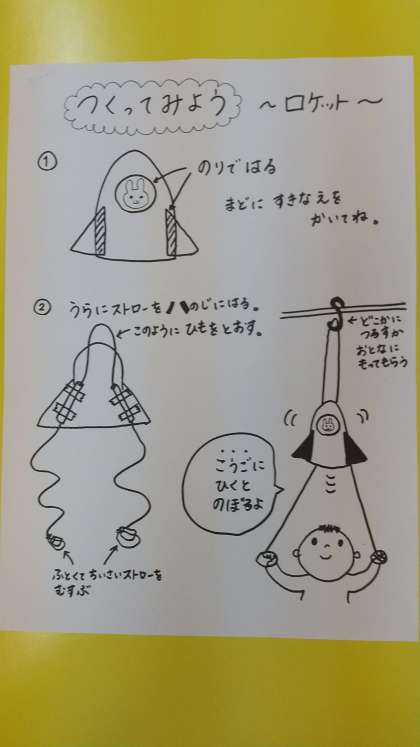 つくってみよう ~ロケット~
①
のりではる
まどに すきなえを
かいてね。
② うらにストローをハのじにはる。
←このように ひもをとおす。
ふとくてちいさいストローを
むすぶ
←どこかに
つるすか
おとなに
もってもらう
こうごに
ひくと
のぼるよ